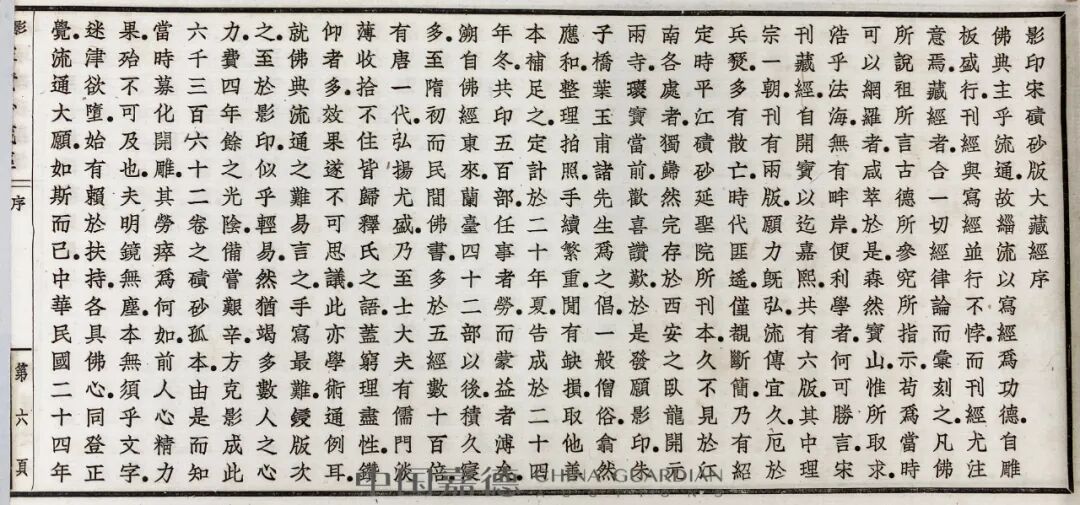 影印宋磧砂版大藏經序
佛典主乎流通。故緇流以寫經爲功德。自雕
板盛行。刊經與寫經並行不悖。而刊經尤注
意焉。藏經者。合一切經律論而彙刻之。凡佛
所說。祖所言。古德所參究所指示。苟爲當時
可以網羅者。咸萃於是。森然寶山。惟所取求。
浩乎法海。無有畔岸。便利學者。何可勝言。宋
刊藏經。自開寶以迄嘉熙。共有六版。其中理
宗一朝。刊有兩版。願力旣弘。流傳宜久。厄於
兵燹。多有散亡。時代匪遙。僅覩斷簡。乃有紹
定時平江磧砂延聖院所刊本。久不見於江
南各處者。獨巋然完存於西安之臥龍開元
兩寺。環寶當前。歡喜讚歎。於是發願影印。朱
子橋葉玉甫諸先生爲之倡。一般僧俗翕然
應和。整理拍照。手續繁重。閒有缺損。取他善
本補足之。定計於二十年夏。告成於二十四
年冬。共印五百部。任事者勞。而蒙益者溥矣。
溯自佛經東來。蘭臺四十二部以後。積久寖
多。至隋初而民間佛書。多於五經數十百倍。
有唐一代。弘揚尤盛。乃至士大夫有儒門淡
薄。收拾不住。皆歸釋氏之語。蓋窮理盡性。鑽
仰者多。效果遂不可思議。此亦學術通例耳。
就佛典流通之難易言之。手寫最難。鏤版次
之。至於影印。似乎輕易。然猶竭多數人之心
力。費四年餘之光陰。備嘗艱辛。方克影成此
六千三百六十二卷之磧砂孤本。由是而知
當時募化開雕。其勞瘁爲何如。前人心精力
果。殆不可及也。夫明鏡無塵。本無須乎文字。
迷津欲墮。始有賴於扶持。各具佛心。同登正
覺。流通大願。如斯而已。中華民國二十四年
序
第六頁
中国嘉德 CHINA GUARDIAN